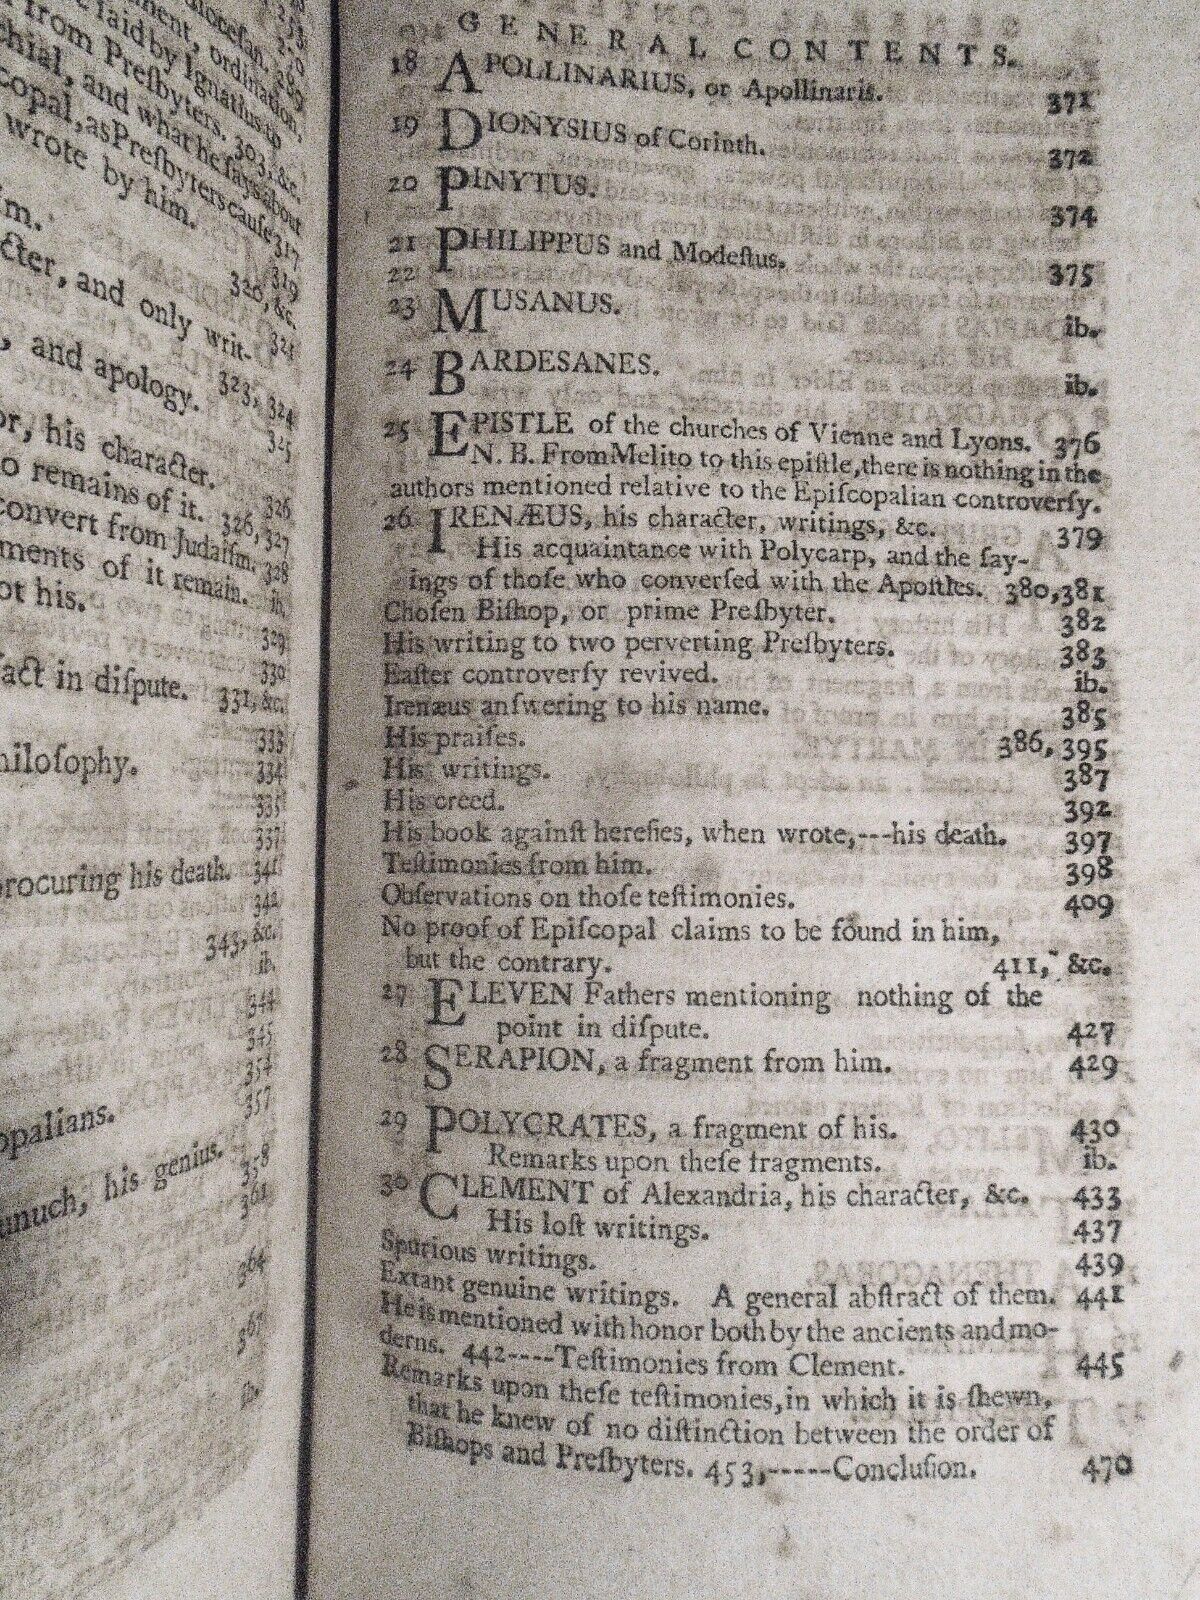 diocesan. 289
ment, ordination,
e said by Ignatius to
from Preſbyters. 303, &c.
chial, and what he ſays about
copal, as Preſbyters cauſe 317
wrote by him. 319
m. 320, &c.
cter, and only writ-
321
, and apology. 323, 324
325
or, his character. 326
o remains of it. 326, 327
convert from Judaiſm. 328
ments of it remain. ib.
ot his. 329
330
fact in diſpute. 331, &c.
333
hiloſophy. 334
335
337
procuring his death. 341
342
343, &c.
ib.
344
345
354
opalians. 357
unuch, his genius. 358
361
364
367
ib.
GENERAL CONTENTS.
18 APOLLINARIUS, or Apollinaris. 371
19 DIONYSIUS of Corinth. 372
20 PINYTUS. 374
21 PHILIPPUS and Modeſtus. 375
22
23 MUSANUS. ib.
24 BARDESANES. ib.
25 EPISTLE of the churches of Vienne and Lyons. 376
N. B. From Melito to this epiſtle, there is nothing in the
authors mentioned relative to the Epiſcopalian controverſy.
26 IRENÆUS, his character, writings, &c. 379
His acquaintance with Polycarp, and the ſay-
ings of thoſe who converſed with the Apoſtles. 380, 381
Choſen Biſhop, or prime Preſbyter. 382
His writing to two perverting Preſbyters. 383
Eaſter controverſy revived. ib.
Irenæus anſwering to his name. 385
His praiſes. 386, 395
His writings. 387
His creed. 392
His book againſt hereſies, when wrote,---his death. 397
Teſtimonies from him. 398
Obſervations on thoſe teſtimonies. 409
No proof of Epiſcopal claims to be found in him,
but the contrary. 411, &c.
27 ELEVEN Fathers mentioning nothing of the
point in diſpute. 427
28 SERAPION, a fragment from him. 429
29 POLYCRATES, a fragment of his. 430
Remarks upon theſe fragments. ib.
30 CLEMENT of Alexandria, his character, &c. 433
His loſt writings. 437
Spurious writings. 439
Extant genuine writings. A general abſtract of them. 441
He is mentioned with honor both by the ancients and mo-
derns. 442----Teſtimonies from Clement. 445
Remarks upon theſe teſtimonies, in which it is ſhewn,
that he knew of no diſtinction between the order of
Biſhops and Preſbyters. 453,-----Concluſion. 470